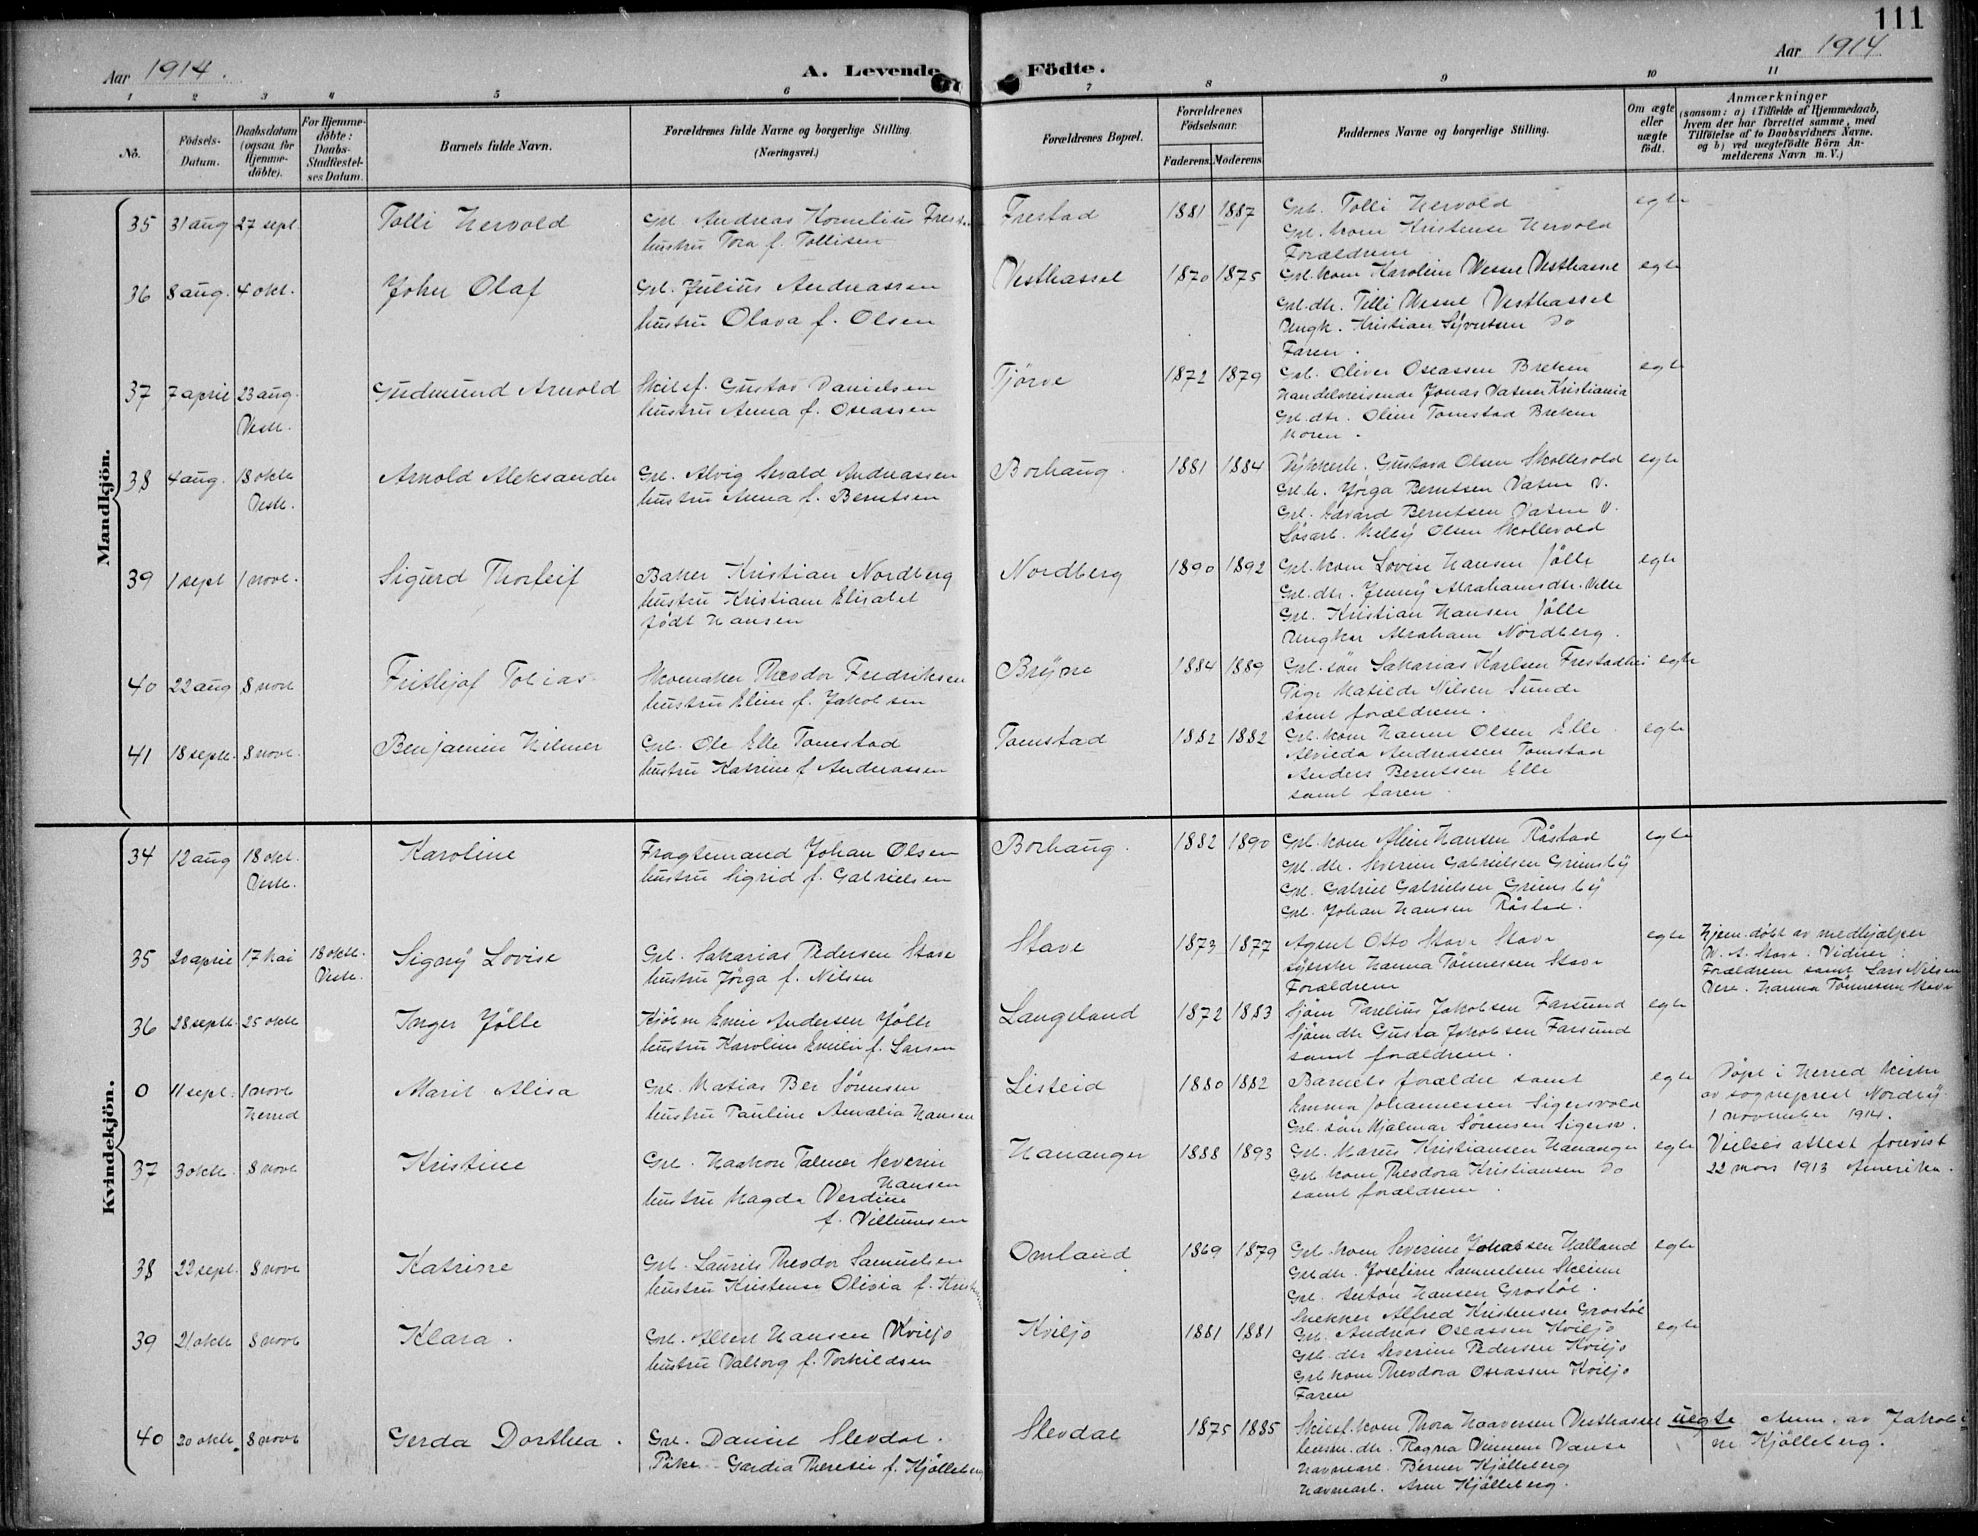 111
Aar 1914.
A. Levende Födte.
Aar 1914
1 2 3 4 5 6 7 8 9 10 11
No.
Födsels-Datum.
Daabsdatum (ogsaa for Hjemme-döbte).
For Hjemme-döbte: Daabs-Stadfæstel-ses Datum.
Barnets fulde Navn.
Forældrenes fulde Navne og borgerlige Stilling.
(Næringsvei.)
Forældrenes Bopæl.
Forældrenes Födselsaar.
Faderens. Moderens.
Faddernes Navne og borgerlige Stilling.
Om ægte eller uægte födt.
Anmærkninger
(saasom: a) i Tilfælde af Hjemmedaab, hvem der har forrettet samme, med Tilföielse af to Daabsvidners Navne. og b) ved uægtefödte Börn An-melderens Navn m. V.)
Mandkjön.
35 31 aug 27 sept Tolli Hervold Grl. Andreas Kornelius
hustru Tora f. Tollisen
Frestad 1881 1887 Grb. Tolli Hervold
Grl. kom Kristense Hervold
Forældrene
egte
36 8 aug. 4 okt. John Olaf Grl. Julius Andreassen
hustru Olava f. Olsen
Vesthassel 1870 1875 Grl. kom Karoline Wessel Vesthassel
Grl. dtr. Tilli Wessel Vesthassel
Ungk. Kristian Syvertsen do
Faren.
egte
37 7 april 23 aug. Vestr. Gudmund Arnold Skilsf. Gustav Danielsen
hustru Anna f. Oseassen
Tjörve 1872 1879 Grl. Oliver Oseassen Brekne
Handelsreisende Jonas Vatner Kristiania
Grl. dtr. Oline Tomstad Brekne
Moren.
egte
38 4 aug. 18 okt. Vestr. Arnold Aleksander Grl. Alvig Sevald Andreassen
hustru Anna f. Berntsen
Borhaug. 1881 1884 Dykkerh. Gustava Olsen Skollevold
Grl. h. Jörga Berntsen Vatne V.
Grl. Edvard Berntsen Vatne V.
Lösarb. Melby Olsen Skollevold
egte
39 1 sept 1 novb. Sigurd Thorleif Baker Kristian Nordberg
hustru Kristiane Elisabet
födt Hansen
Nordberg 1890 1892 Grl. kom Lovise Hansen Jölle
Grl. dtr. Jenny Abrahamsdtr. Velle
Grl. Kristian Hansen Jölle
Ungkar Abraham Nordberg.
egte
40 22 aug 8 novb Frithjof Tobias Skomaker Theodor Fredriksen
hustru Eline f. Jakobsen
Bryne 1884 1889 Grl. sön Sakarias Karlsen
Pige Matilde Nilsen Sunde
samt forældrene.
egte
41 18 septr. 8 novb. Benjamin Hilmer Grl. Ole Elle Tomstad
hustru Katrine f. Andreassen
Tomstad 1882 1882 Grl. kom Hanne Olsen Elle
Alvilda Andreassen Tomstad
Anders Berntsen Elle
samt faren.
egte
Kvindekjön.
34 12 aug 18 okt. Vestr. Karoline Fragtemand Johan Olsen
hustru Sigrid f. Gabrielsen
Borhaug. 1882 1890 Grl. kom Aline Hansen Råstad
Grl. dtr. Severine Gabrielsen Grimsby
Grl. Gabriel Gabrielsen Grimsby
Grl. Johan Hansen Råstad.
egte
35 20 april 17 Mai 18 oktr. Vestr. Signy Lovise Grl. Sakarias Pedersen Stave
hustru Jörga f. Nilsen
Stave 1873 1877 Agent Otto Stave Stave
Syerske Hanna Tönnessen Stave
Forældrene
egte Hjem. döbt av medhjælper
W. A. Stave. Vidner:
Forældrene samt Lars Nilsen
Vere. Hanna Tönnesen Stave
36 28 septr. 25 oktr Inger Jölle Kjöbm Andersen Jölle
hustru Karoline Emilie f. Larsen
Langeland 1872 1883 Sjöm Parelius Jakobsen Farsund
Sjöm dtr Gusta Jakobsen Farsund
samt forældrene.
egte
0 11 sept. 1 novb Herred Marit Alisa Grl. Matias Ber Sörensen
hustru Pauline Amalia Hansen
Listeid 1880 1882 Barnets forældre samt
Emma Johannessen Sigersvold
Grl. sön Hjalmar Sörensen Sigersv.
egte Döpt i Herred kirke
av sogneprest Nordby
1 november 1914.
37 3 oktr. 8 novb Kristine Grl. Haakon Talmer Severin
Hansen
hustru Magda Verdine
f. Villumsen
Hananger 1888 1893 Grl. Marius Kristiansen Hananger
Grl. kom Theodora Kristiansen do
samt forældrene.
egte Vielses attest forevist
22 mars 1913 Amerika.
38 22 sept. 8 novb Katrine Grl. Laurits Theodor Samuelsen
hustru Kristense Olivia f.
Omland 1869 1879 Grl. kom Severine Jakobsen Halland
Grl. dtr. Josefine Samuelsen Skeime
Grl. Anton Hansen Grostöl.
Snekker Alfred Kristensen Grostöl
egte
39 21 oktr 8 novb Klara. Grl. Albert Hansen Kviljo
hustru Valborg f. Torkildsen
Kviljo 1881 1881 Grl. Andreas Oseassen Kviljo
Grl. dtr Severine Pedersen Kviljo
Grl. kom Theodora Oseassen Kviljo
Faren
egte
40 20 oktr. 8 novb Gerda Dorthea. Grl. Daniel Slevdal.
Pike Gardia Theresie f. Kjölleberg
Slevdal 1875 1885 Skilsf. kom Thora Haaversen Vesthassel
husm. dtr. Ragna Vannse
Havnearb. Berner Kjölleberg
Havnearb. Arne Kjölleberg.
uegte Anm. av Jakob
Kjölleberg.